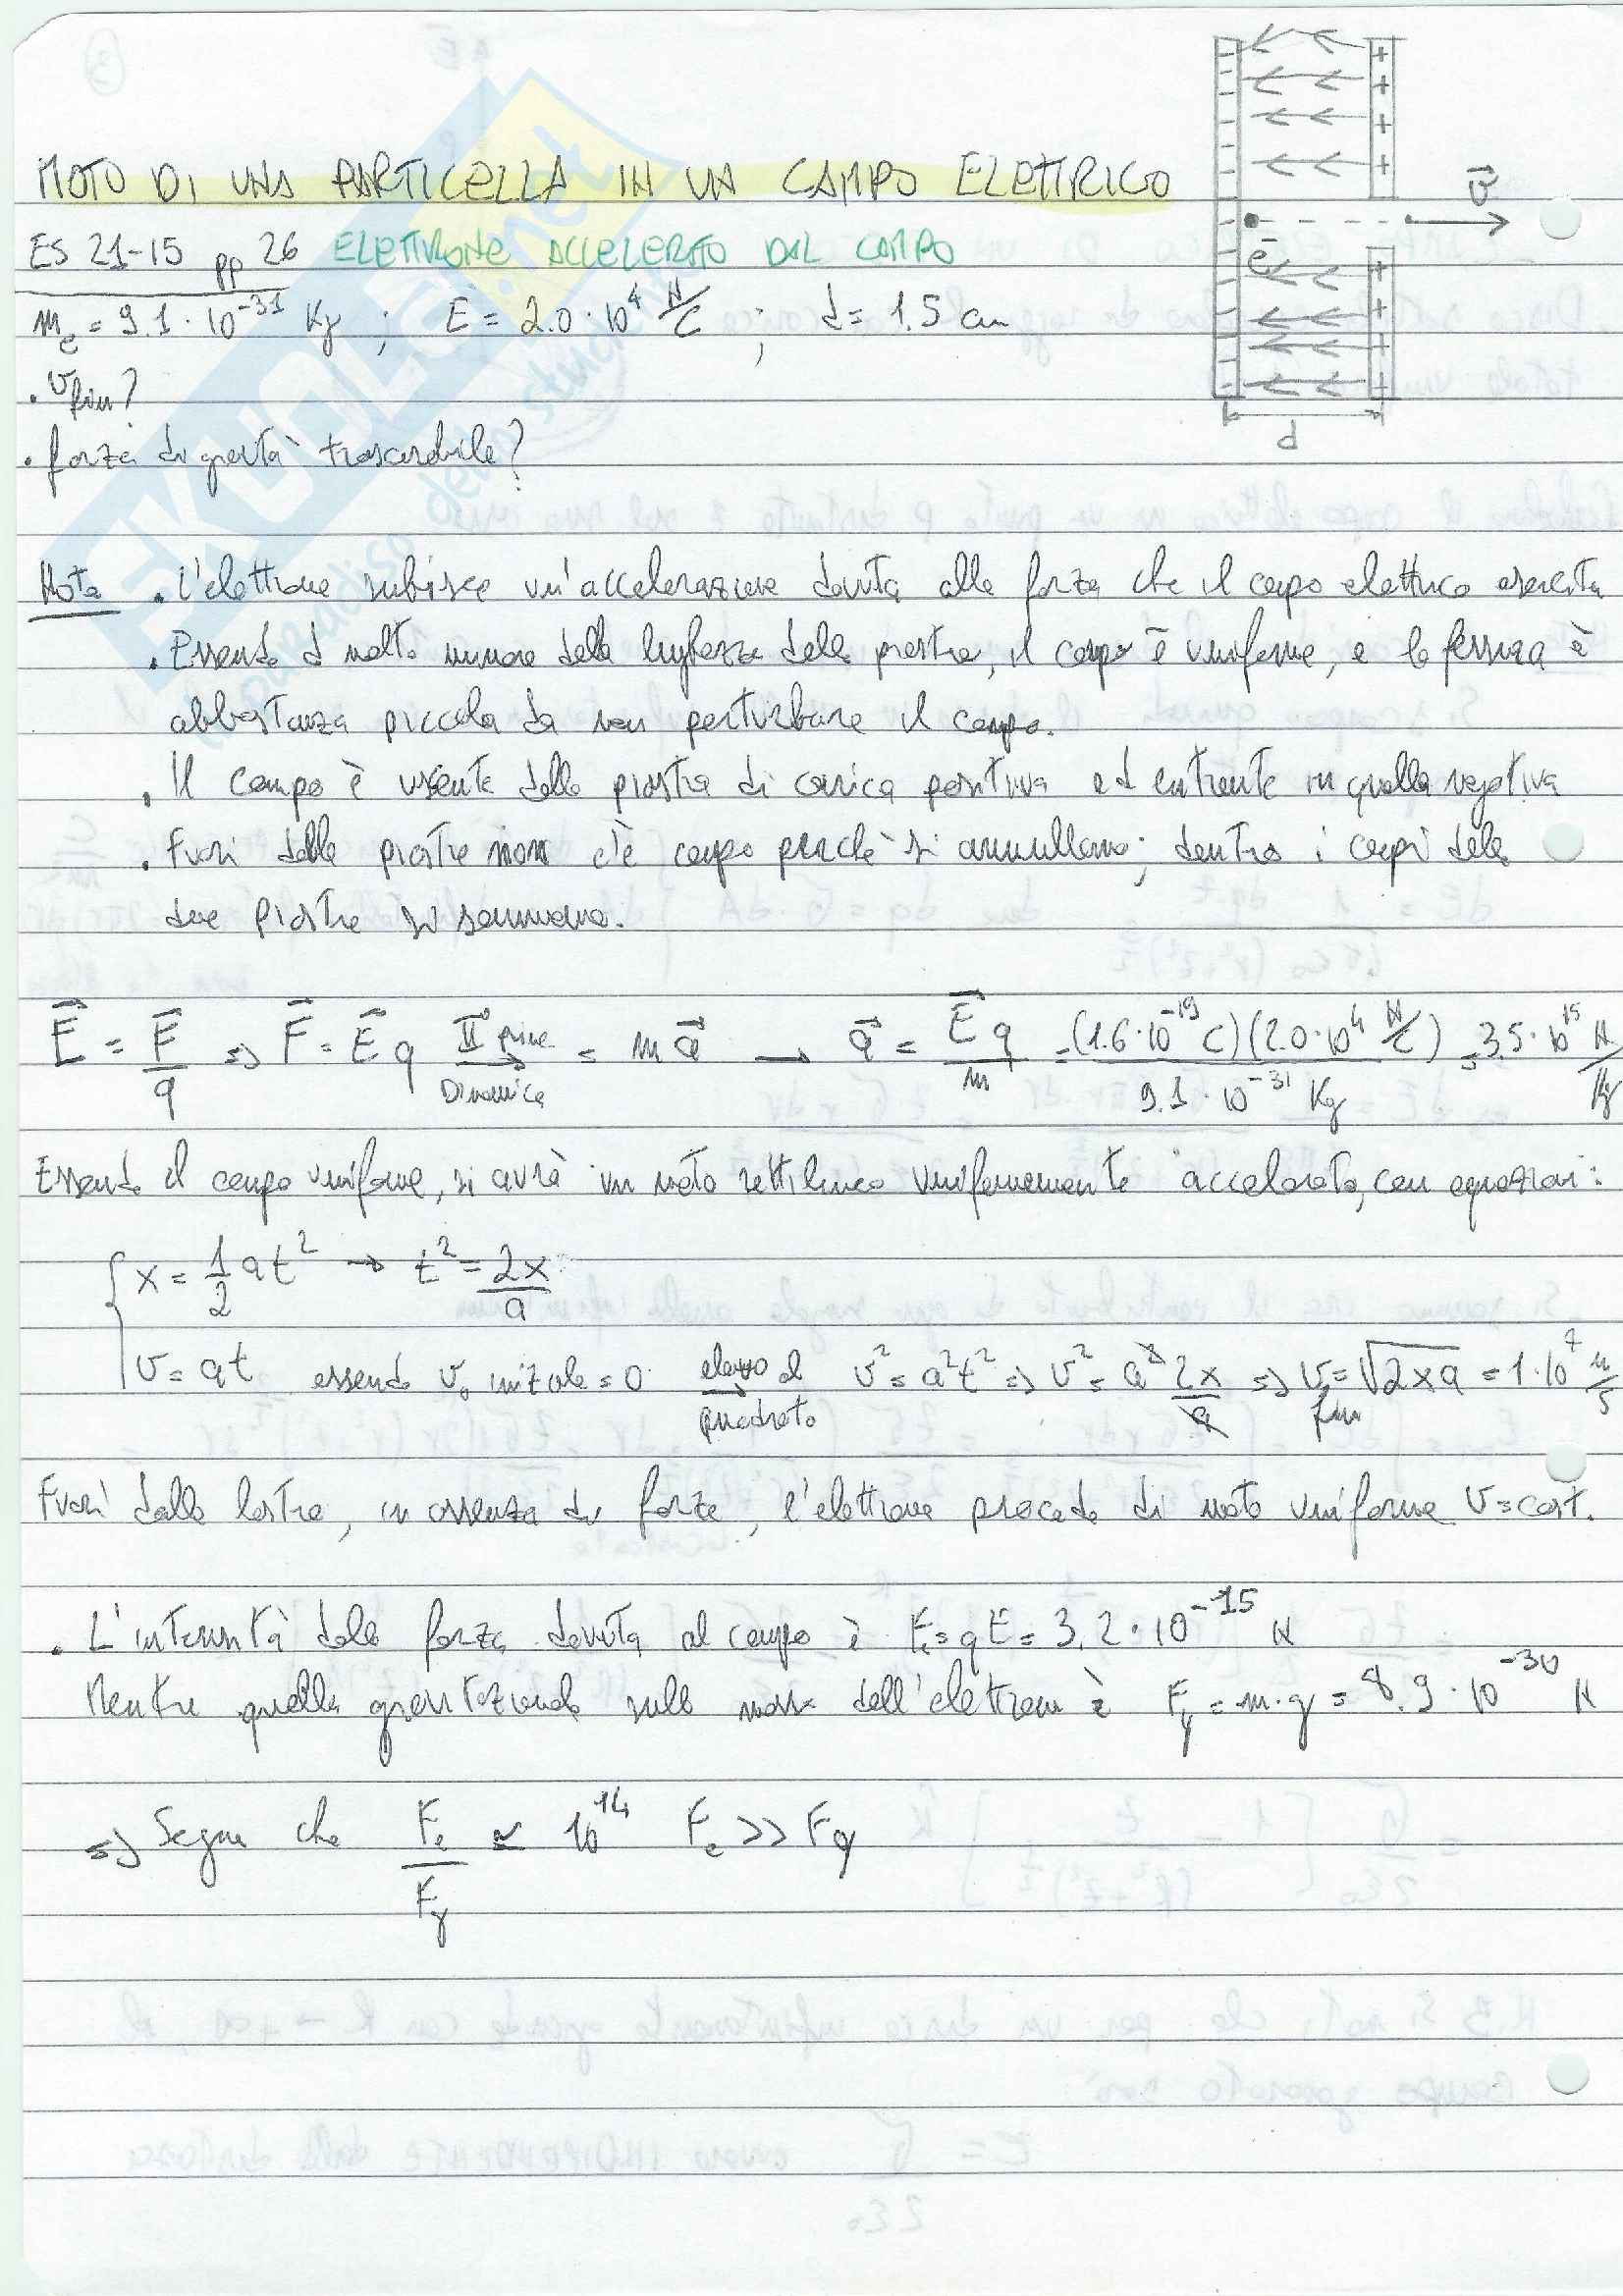 MOTO DI UNA PARTICELLA IN UN CAMPO ELETTRICO
ES 21-15 pp 26 ELETTRONE ACCELERATO DAL CAMPO
mₑ = 9.1 · 10⁻³¹ Kg ; E = 2.0 · 10⁴ N/C ; d = 1.5 cm
• v fin?
• forza di gravità trascurabile?
v⃗
e⁻
d
Nota • L'elettrone subisce un'accelerazione dovuta alla forza che il campo elettrico esercita
• Essendo d molto minore della lunghezza delle piastre, il campo è uniforme, e la fessura è
abbastanza piccola da non perturbare il campo.
• Il campo è uscente dalla piastra di carica positiva ed entrante in quella negativa
• Fuori dalle piastre non c'è campo perché si annullano; dentro i campi delle
due piastre si sommano.
E⃗ = F⃗/q ⇒ F⃗ = E⃗ q II princ Dinamica → = m a⃗ → a⃗ = E⃗ q / m = (1.6 · 10⁻¹⁹ C)(2.0 · 10⁴ N/C) / 9.1 · 10⁻³¹ Kg = 3.5 · 10¹⁵ N/Kg
Essendo il campo uniforme, si avrà un moto rettilineo uniformemente accelerato, con equazioni:
x = 1/2 at² → t² = 2x/a
v = at essendo v₀ iniziale = 0 elevo al quadrato → v² = a²t² ⇒ v² = a² 2x/a ⇒ v fin = √2xa = 1 · 10⁷ m/s
Fuori dalle lastre, in assenza di forze, l'elettrone procede di moto uniforme v = cost.
• L'intensità della forza dovuta al campo è Fₑ = qE = 3.2 · 10⁻¹⁵ N
Mentre quella gravitazionale sulla massa dell'elettrone è Fg = m · g = 8.9 · 10⁻³⁰ N
⇒ Segue che Fₑ/Fg ≃ 10¹⁴ Fₑ >> Fg